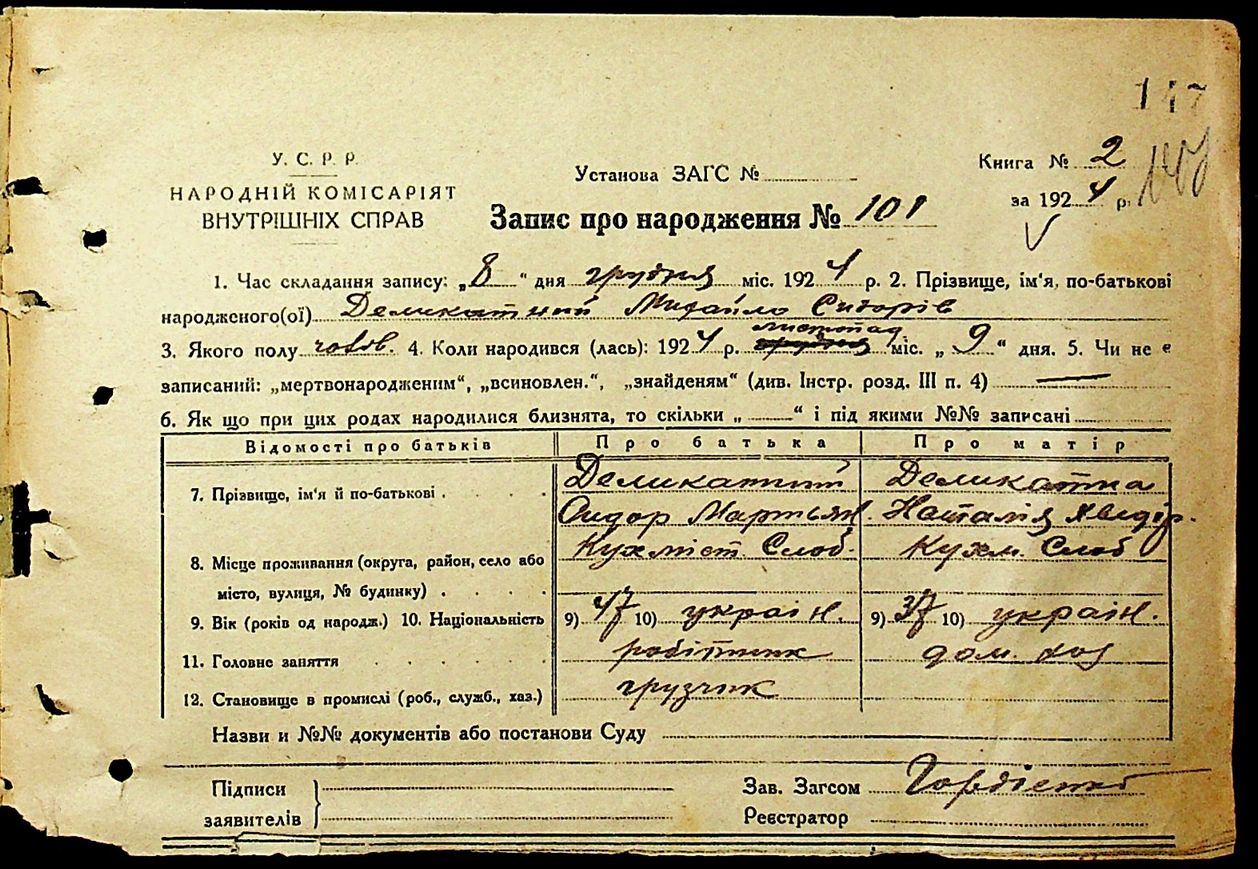 147
У. С. Р. Р.
НАРОДНІЙ КОМІСАРІЯТ
ВНУТРІШНІХ СПРАВ
Установа ЗАГС №
Книга № 2
за 1924 р.
Запис про народження № 101
1. Час складання запису: „ 8 “ дня грудня міс. 1924 р. 2. Прізвище, ім'я, по-батькові
народженого(ої) Деликатний Михайло Сидорів
3. Якого полу чолов. 4. Коли народився (лась): 1924 р. листопад міс. „ 9 “ дня. 5. Чи не є
записаний: „мертвонародженим“, „всиновлен.“, „знайденям“ (див. Інстр. розд. III п. 4)
6. Як що при цих родах народилися близнята, то скільки „ “ і під якими №№ записані
Відомості про батьків Про батька Про матір
7. Прізвище, ім'я й по-батькові Деликатний Деликатна
Сидор Мартьян. Наталія
8. Місце проживання (округа, район, село або Кухміст. Слоб. Кухм. Слоб
місто, вулиця, № будинку)
9. Вік (років од народж.) 10. Національність 9) 47 10) україн. 9) 37 10) україн.
11. Головне заняття робітник дом. хоз
12. Становище в промислі (роб., служб., хаз.) грузчик
Назви и №№ документів або постанови Суду
Підписи
заявителів
Зав. Загсом Гордієнко
Реєстратор